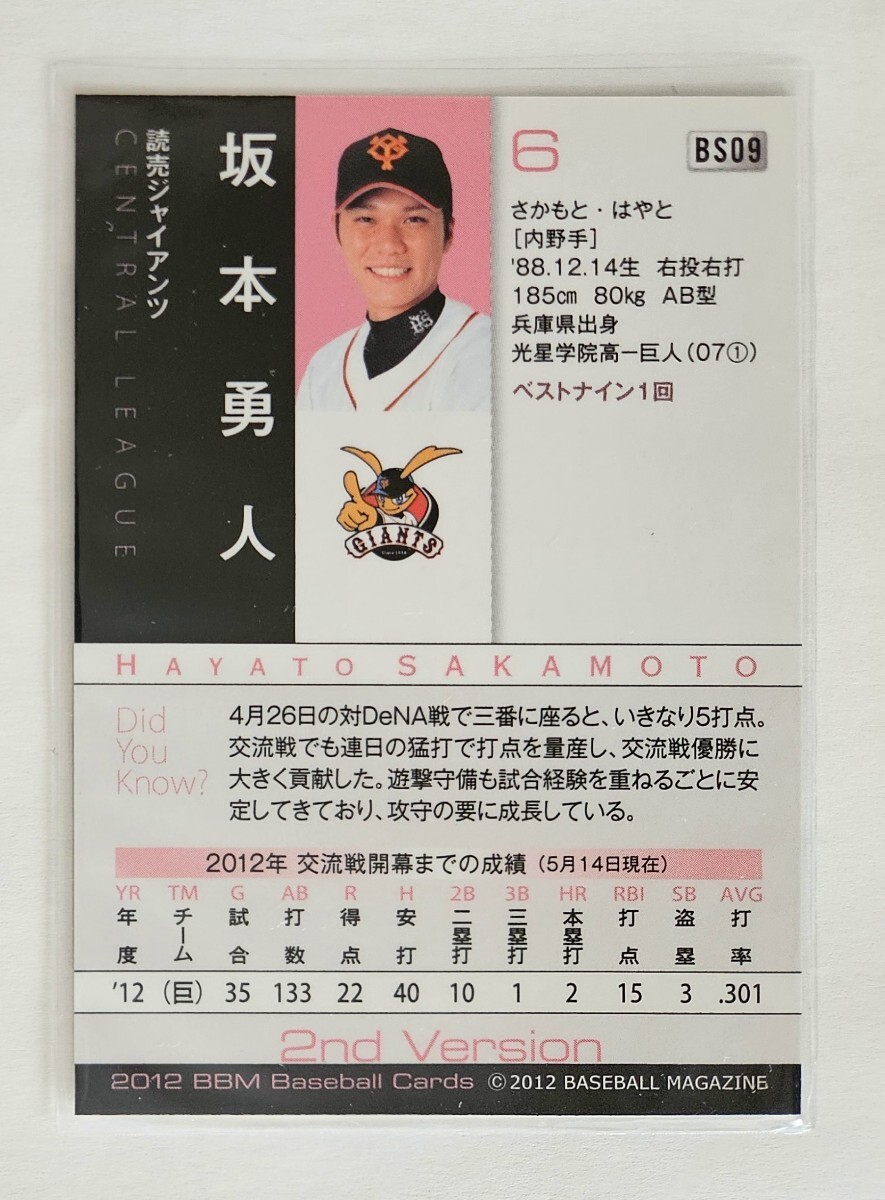 坂本勇人
読売ジャイアンツ
CENTRAL LEAGUE
6
BS09
さかもと・はやと
[内野手]
'88.12.14生 右投右打
185㎝ 80㎏ AB型
兵庫県出身
光星学院高ー巨人(07①)
ベストナイン1回
GIANTS
HAYATO SAKAMOTO
Did
You
Know?
4月26日の対DeNA戦で三番に座ると、いきなり5打点。
交流戦でも連日の猛打で打点を量産し、交流戦優勝に
大きく貢献した。遊撃守備も試合経験を重ねるごとに安
定してきており、攻守の要に成長している。
2012年 交流戦開幕までの成績 (5月14日現在)
YR TM G AB R H 2B 3B HR RBI SB AVG
年度 チーム 試合 打数 得点 安打 二塁打 三塁打 本塁打 打点 盗塁 打率
'12 (巨) 35 133 22 40 10 1 2 15 3 .301
2nd Version
2012 BBM Baseball Cards ©2012 BASEBALL MAGAZINE